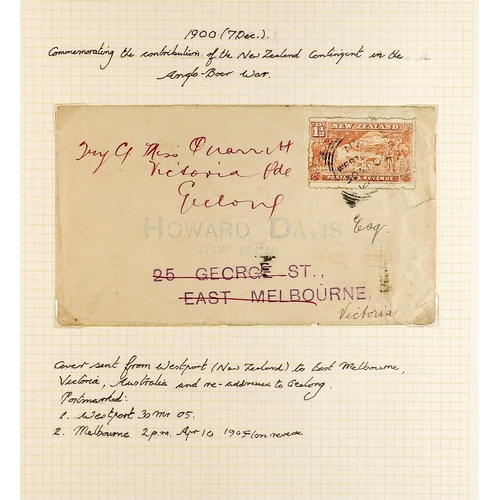 1900 (7 Dec.).
Commemorating the contribution of the New Zealand Contingent in the
Anglo-Boer War.
1½D NEW ZEALAND
POSTAGE & REVENUE
Try C/ Miss
Victoria Pde
Geelong
HOWARD DAVIS
STAMP DEALER
Esq.
25 GEORGE ST.,
EAST MELBOURNE.
Victoria
Cover sent from Westport (New Zealand) to East Melbourne,
Victoria, Australia and re-addressed to Geelong.
Postmarked:
1. Westport 30 Mr 05.
2. Melbourne 2 p.m. Apr 10 1905 (on reverse